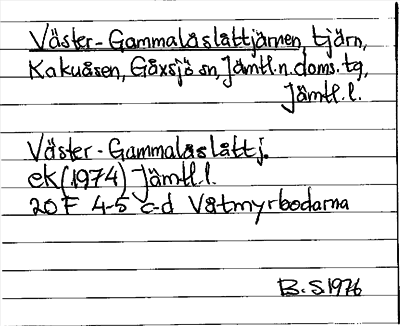 Väster-Gammalåslåttjärnen, tjärn,
Kakuåsen, Gåxsjö sn, Jämtl.n.doms.tg,
Jämtl.l.
Väster-Gammalåslåttj.
ek(1974) Jämtl.l.
20F 4-5 c-d Våtmyrbodarna
B.S 1976